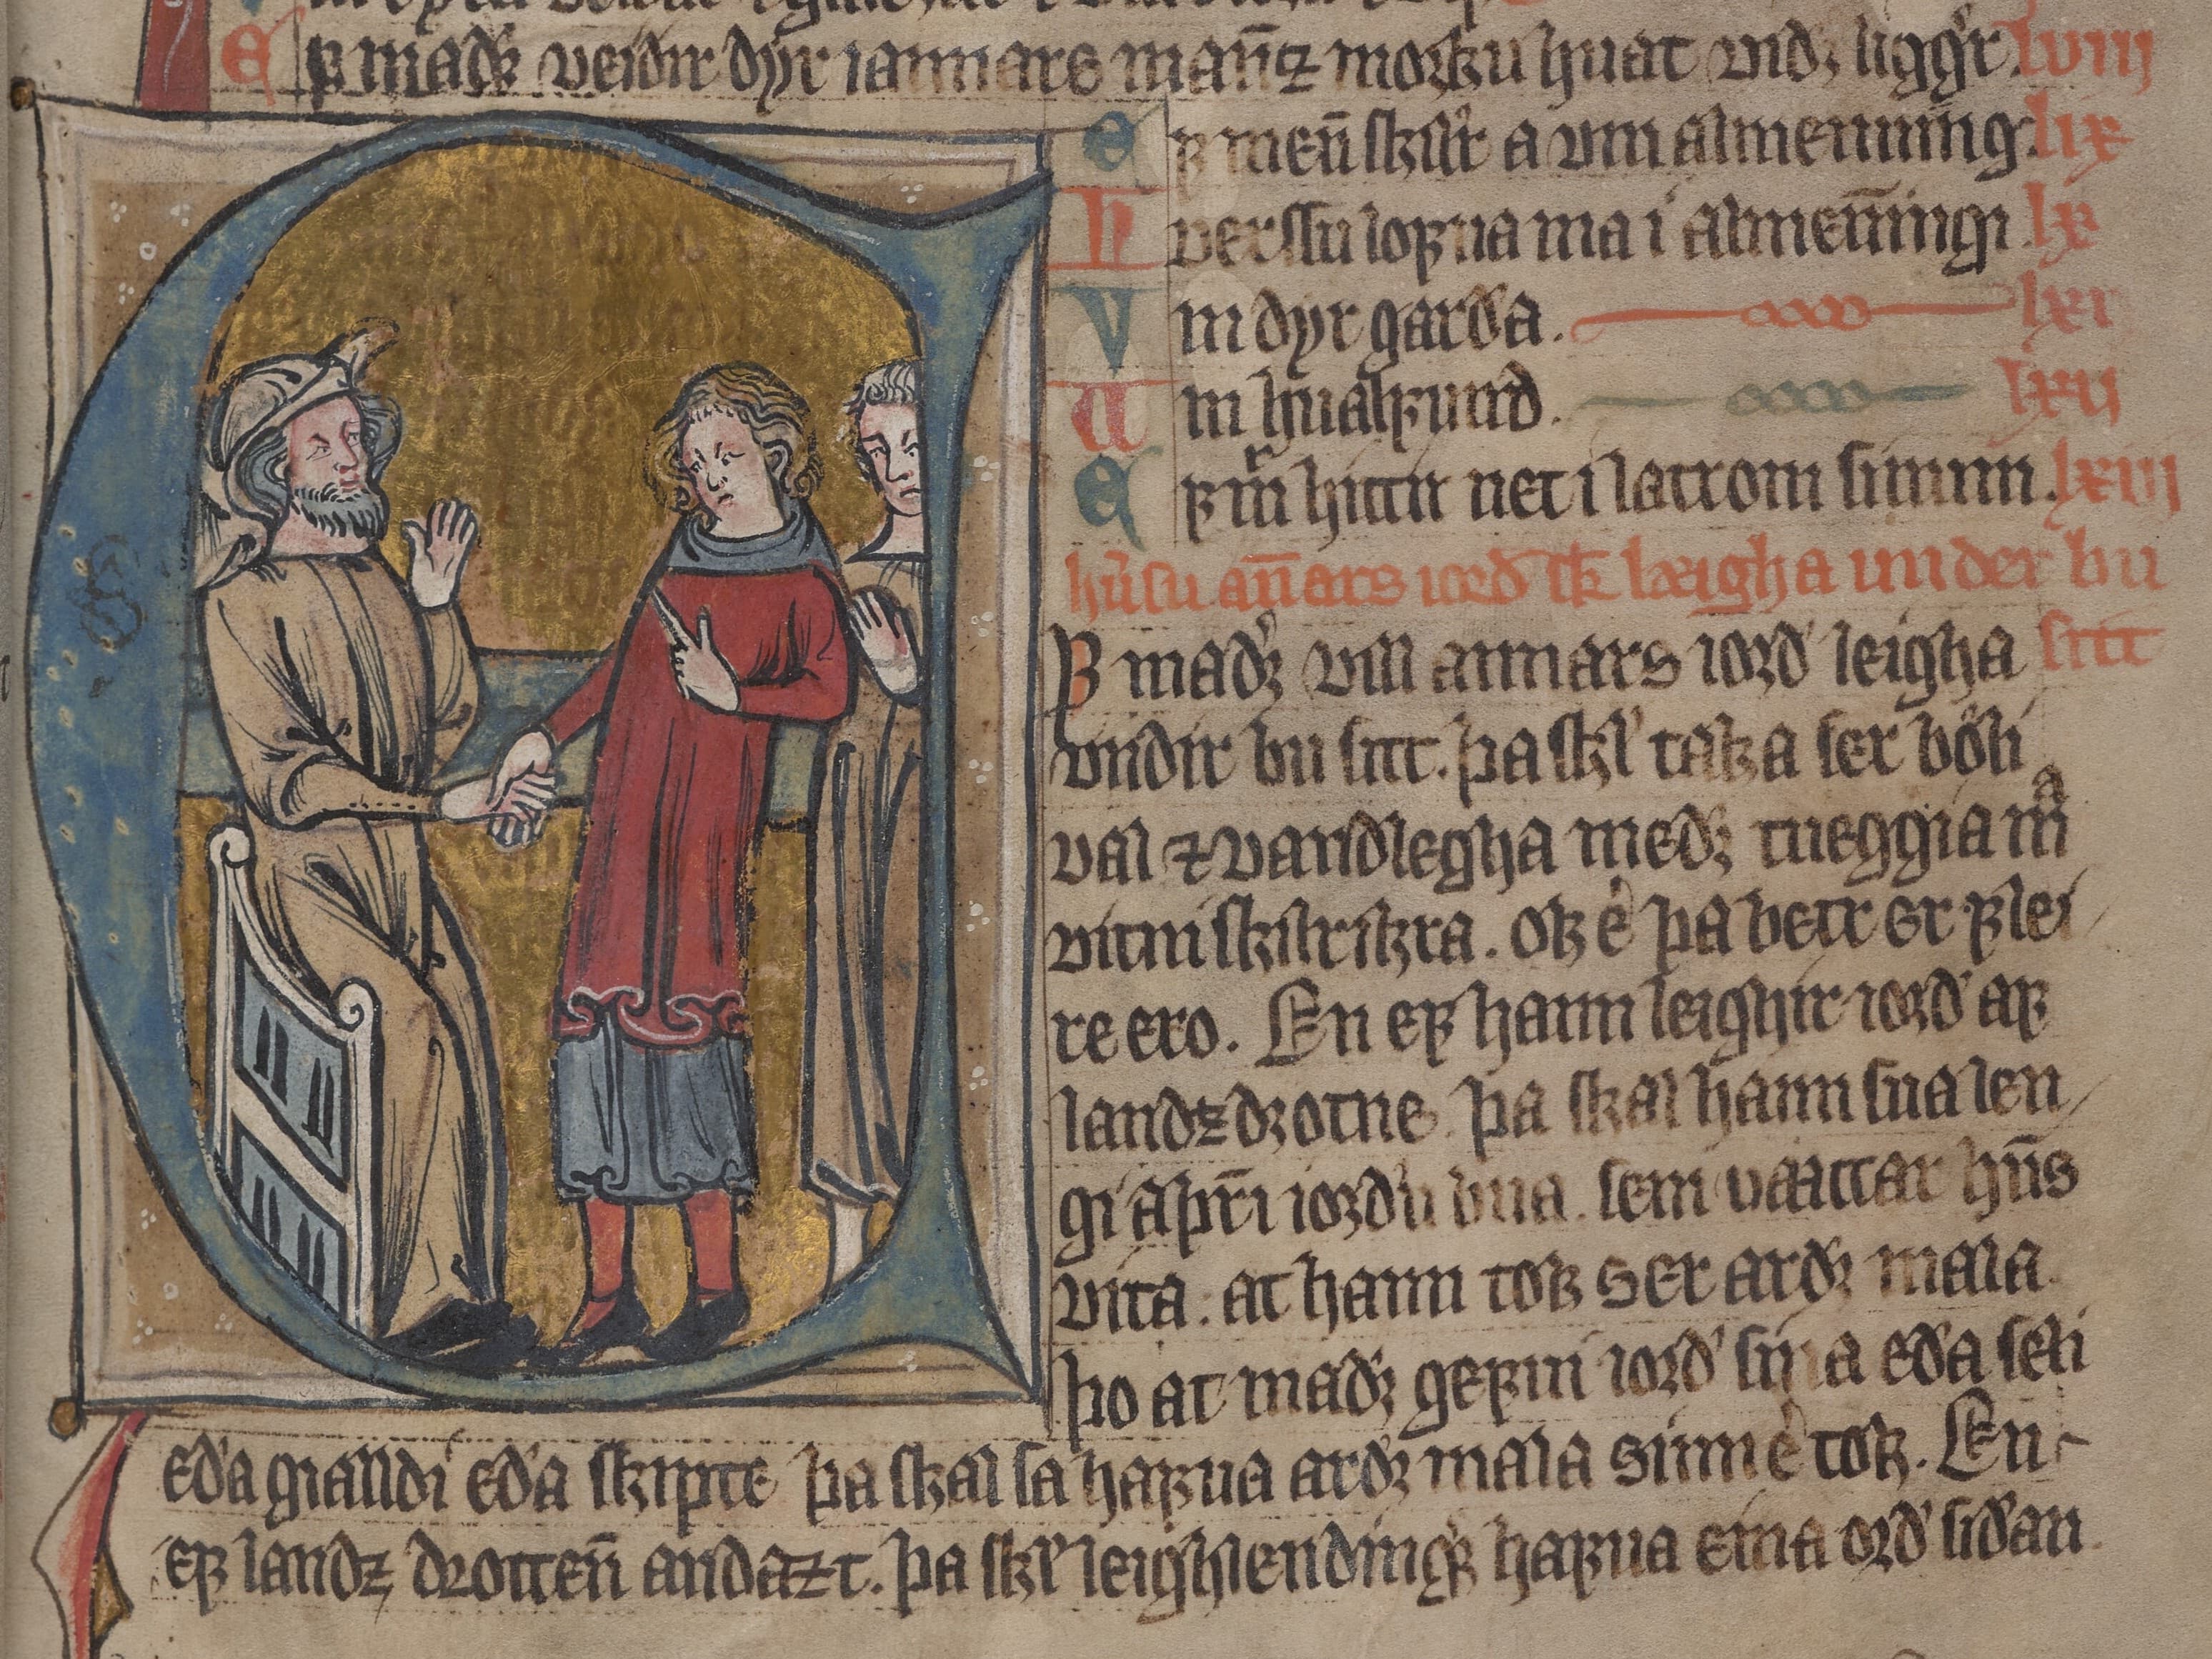 Eꝼ maðꝛ veiðir dyr i annars mannz moꝛku huat við liggr. lviij
Eꝼ menn skilr a vm almenning. lix
Huerssu lopꝼua ma i almenningi. lx
Vm dyr garða. lxi
Um hualꝼund. lxij
Eꝼ maðr hittir net i latrom sinum. lxiij
hũsu añars ioꝛð sk̄ leigha under bu
sitt
ꝼ maðꝛ vill annars ioꝛð leigha
vndir bu sitt. þa skl taka ser boli
val ⁊ vandlegha með tueggia mª
vitni skilrikra. Ok e þa betr er ꝼlei
re ero. En eꝼ hann leighir ioꝛð aꝼ
landzdꝛotne. þa skal hann sua len
gi a þri ioꝛðu bua. sem vaattar hñs
vita. at hann tok ser arðꝛ mala.
þo at maðꝛ geꝼui ioꝛð sina eða seli
eða gialldi eða skipte þa skal sa haꝼua arðꝛ mala sinn e tok. En
eꝼ landz dꝛotteñ andazt. þa skl leighlendingꝛ haꝼua eina oꝛð siðan